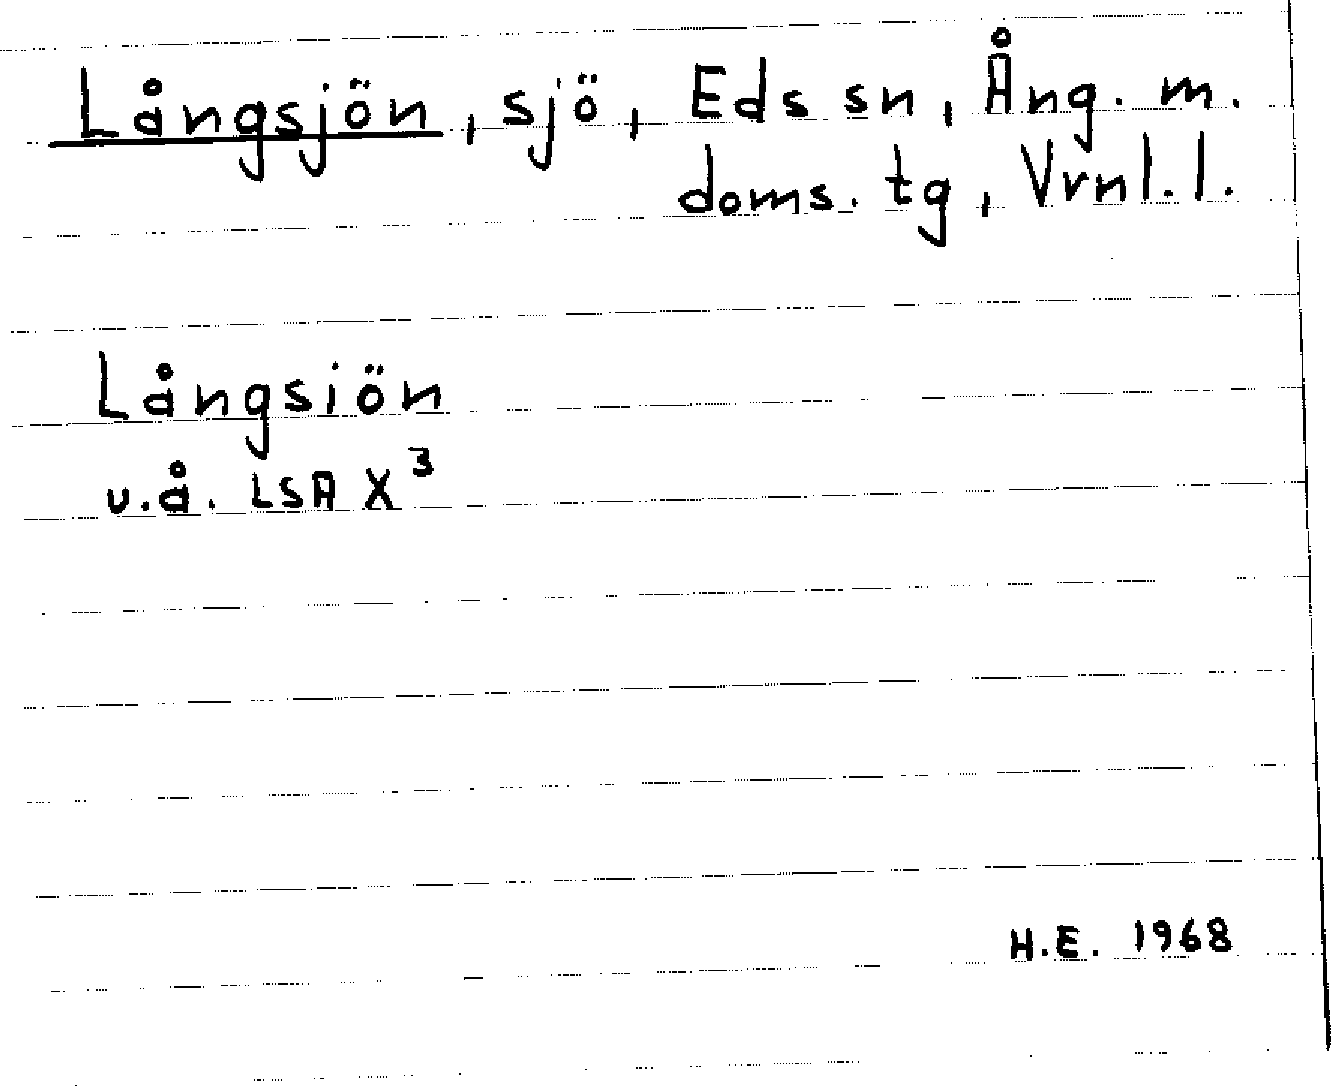 Långsjön, sjö, Eds sn, Ång. m.
doms. tg, Vrnl. l.
Långsiön
u.å. LSA X³
H.E. 1968